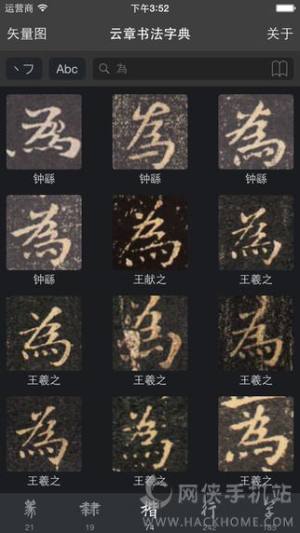 运营商 下午3:52
矢量图 云章书法字典 关于
丶フ Abc 為
為 為 為
钟繇 钟繇 钟繇
為 為 為
钟繇 王献之 王羲之
為 為 為
王羲之 王羲之 王羲之
為 為 為
王羲之 王羲之 王羲之
篆 隸 楷 行 字
21 19 74 242 183
网侠手机站
WWW.HACKHOME.COM